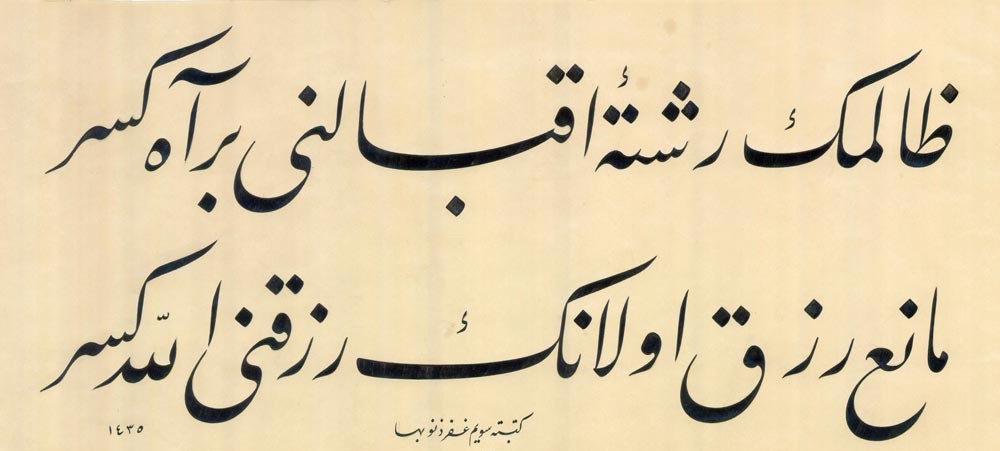 ظالمك رشتۀ اقبالنی بر آه کسر
مانع رزق اولانك رزقنی الله کسر
کتبته سویم غفر ذنوبها
١٤٣٥